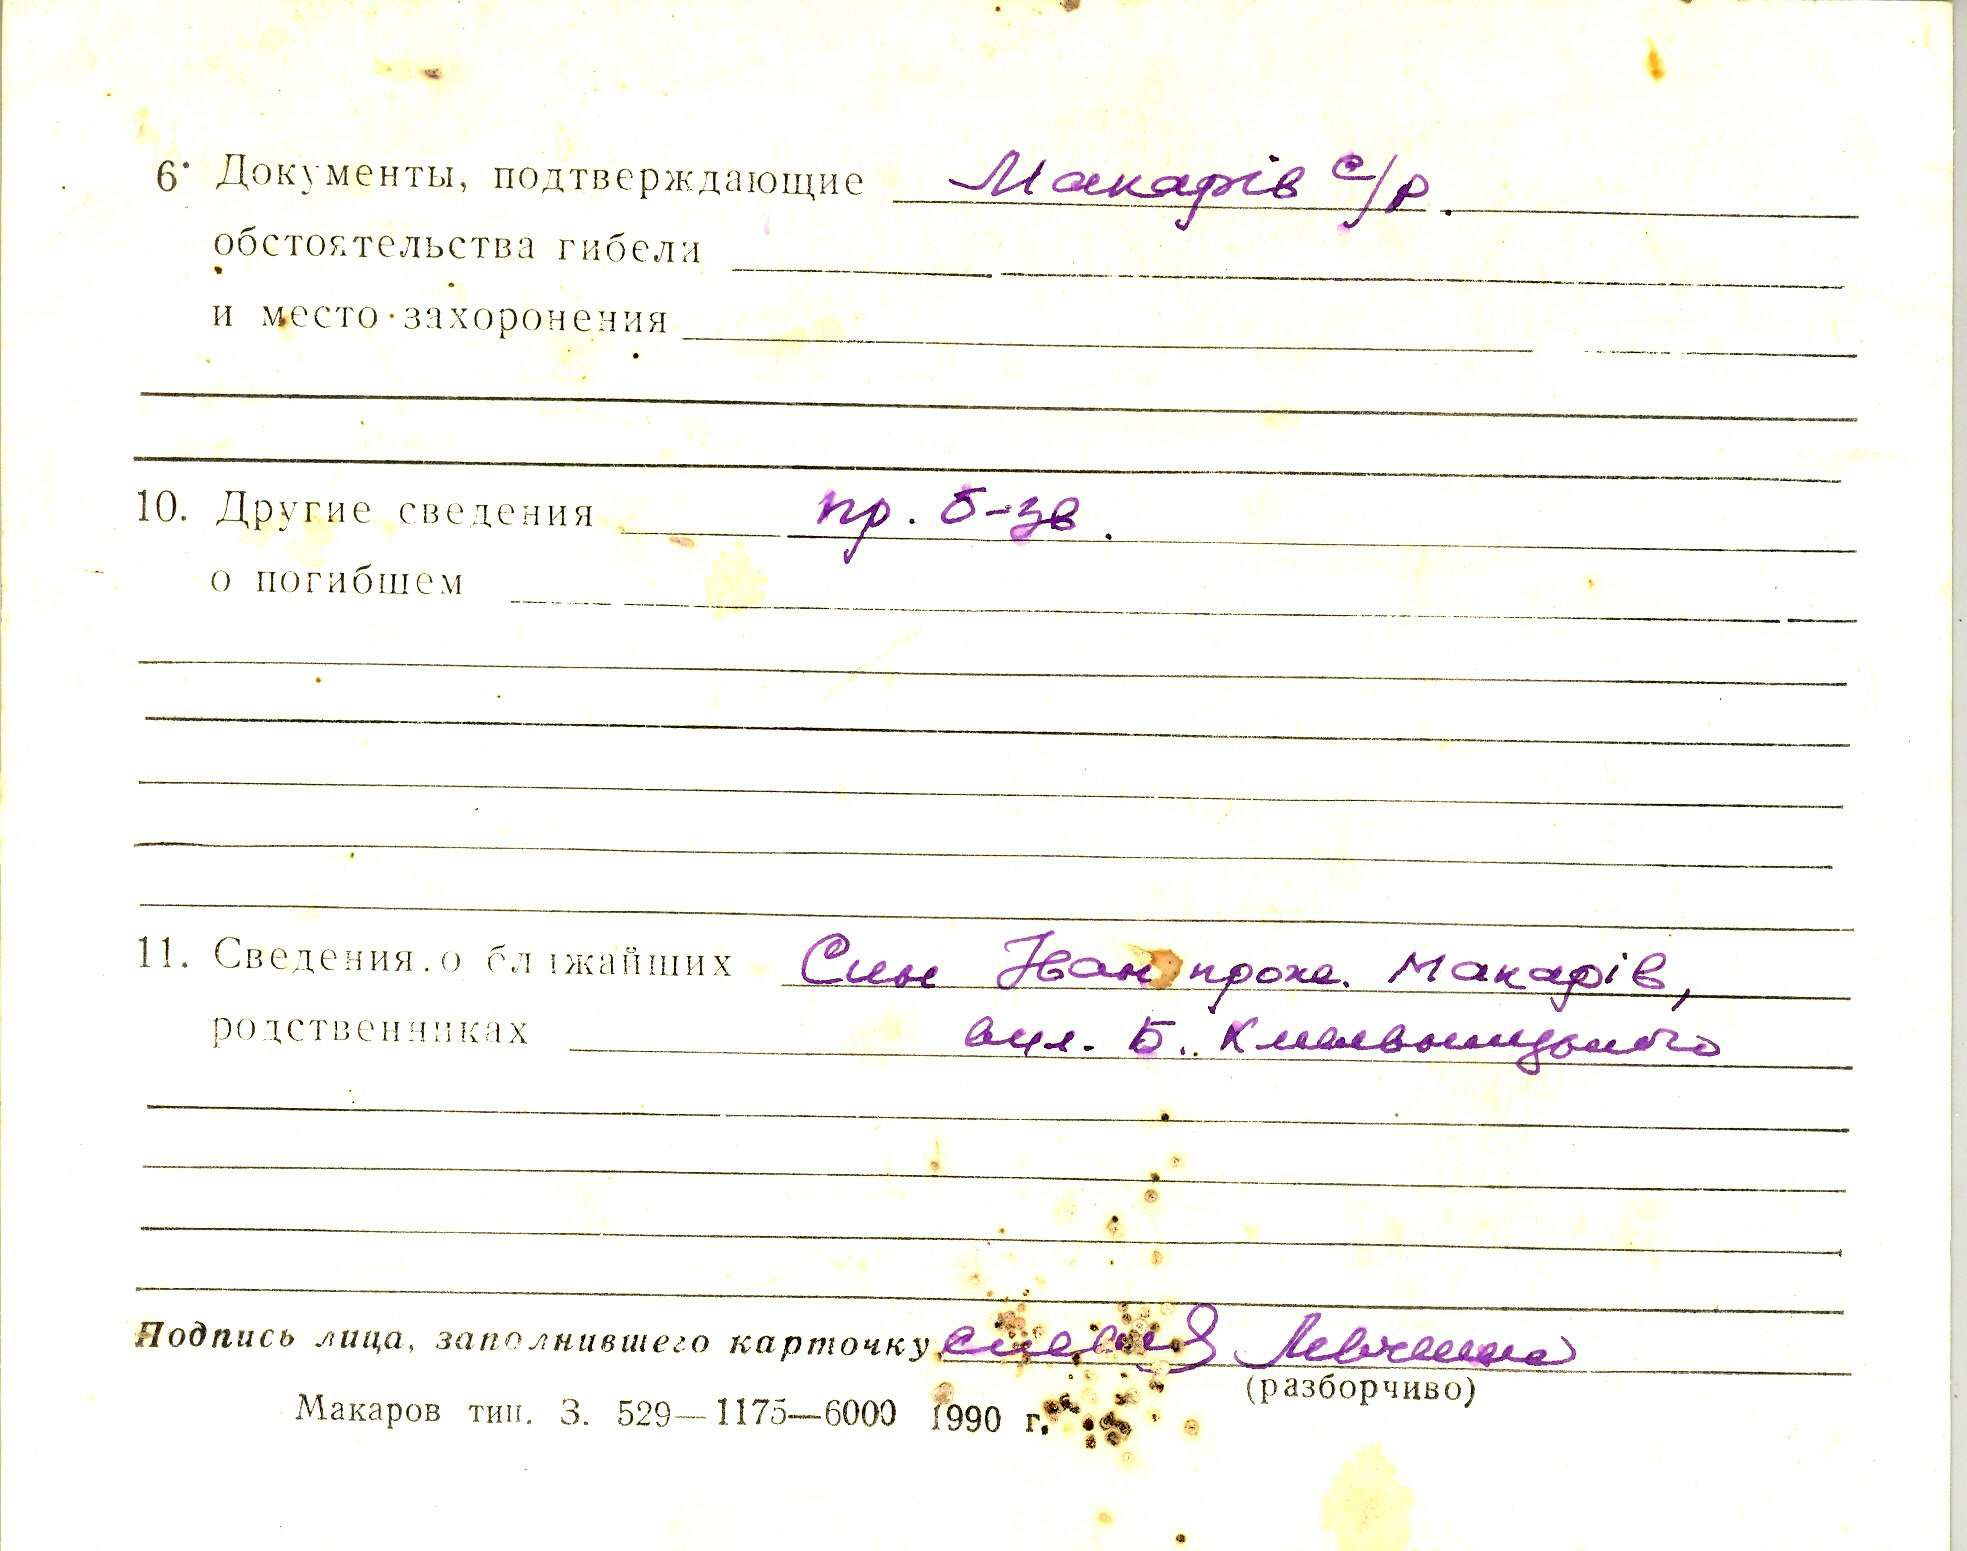 6. Документы, подтверждающие Макарів с/р.
обстоятельства гибели
и место захоронения
10. Другие сведения пр. б-зв.
о погибшем
11. Сведения о ближайших Син Іван прож. Макарів,
родственниках вул. Б. Хмельницького
Подпись лица, заполнившего карточку
(разборчиво)
Макаров тип. З. 529—1175—6000 1990 г.